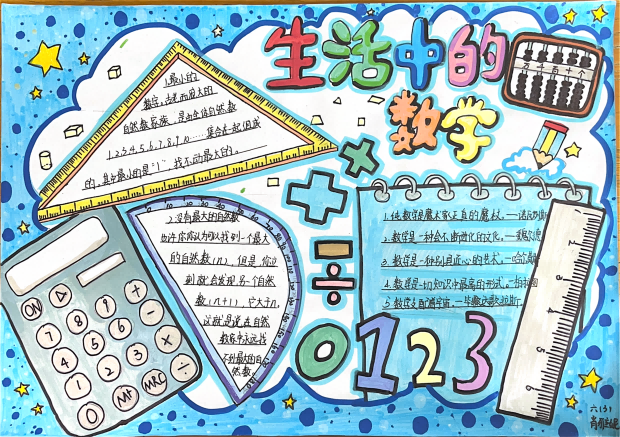 生活中的
数学
1.最小的
数字,古老而庞大的
自然数家族,是由全体自然数
1.2.3.4.5.6.7.8.9.10……集合在一起组成
的,其中最小的是"1",找不到最大的。
2.没有最大的自然数
也许你认为可以找到一个最大
的自然数(n),但是,你立
刻就会发现另一个自然
数(n+1),它大于n,
这就是说,在自然
数家族中永远找
不到最大的自
然数。
1.纯数学是魔术家真正的魔杖。
2.数学是一种会不断进化的文化。
3.数学是一种别具匠心的艺术。
4.数学是一切知识中最高的形式。
5.数支配着宇宙。
ON
7 8 9 +
4 5 6 -
1 2 3
0 MR MRC ÷
0 1 2 3
六(3)